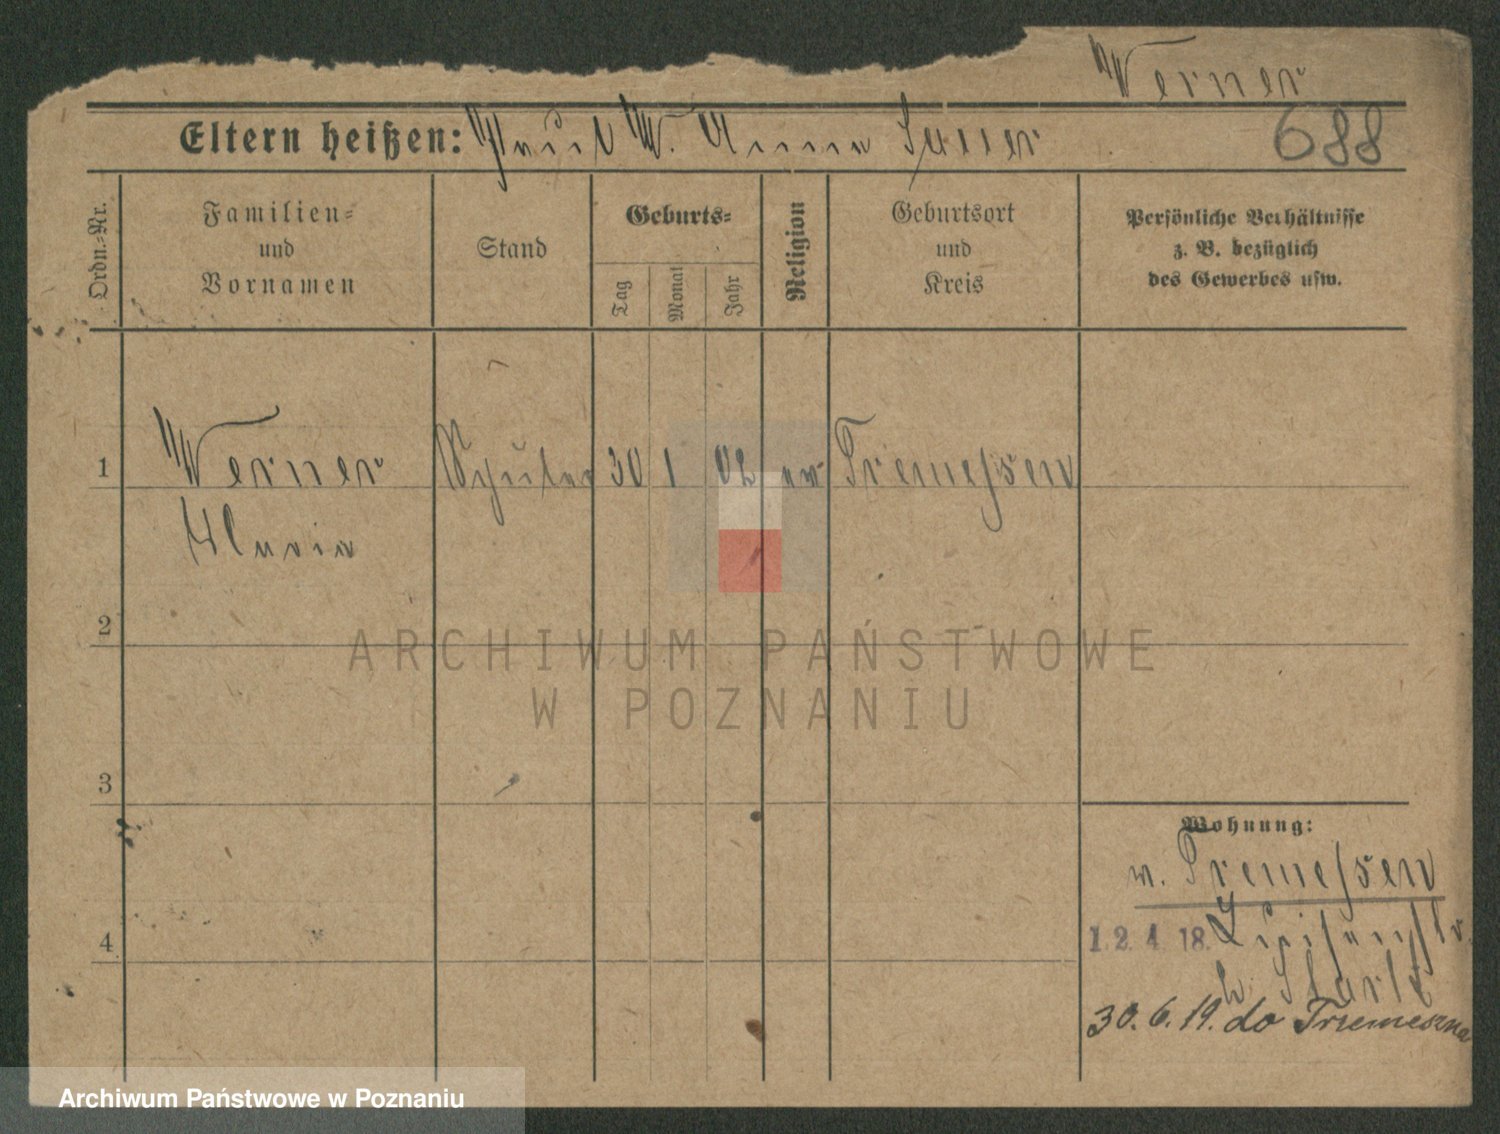 Werner
Eltern heißen: Paul W. Anna Sauer
688
Ordn.-Nr.
Familien- und Vornamen
Stand
Geburts-
Tag
Monat
Jahr
Religion
Geburtsort und Kreis
Persönliche Verhältnisse
z. B. bezüglich
des Gewerbes usw.
1 Werner Schüler 30 1 02 ev Tremessen
2
3
4
Wohnung:
v. Tremessen
12. 4. 18.
b.
30. 6. 19. do Trzemeszna
ARCHIWUM PAŃSTWOWE
W POZNANIU
Archiwum Państwowe w Poznaniu